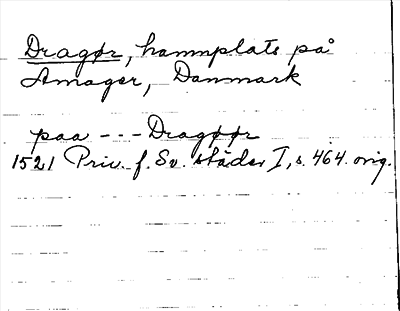 Dragør, hamnplats på
Amager, Danmark
paa --- Dragøør
1521 Priv. f. Sv. städer I, s. 464. orig.